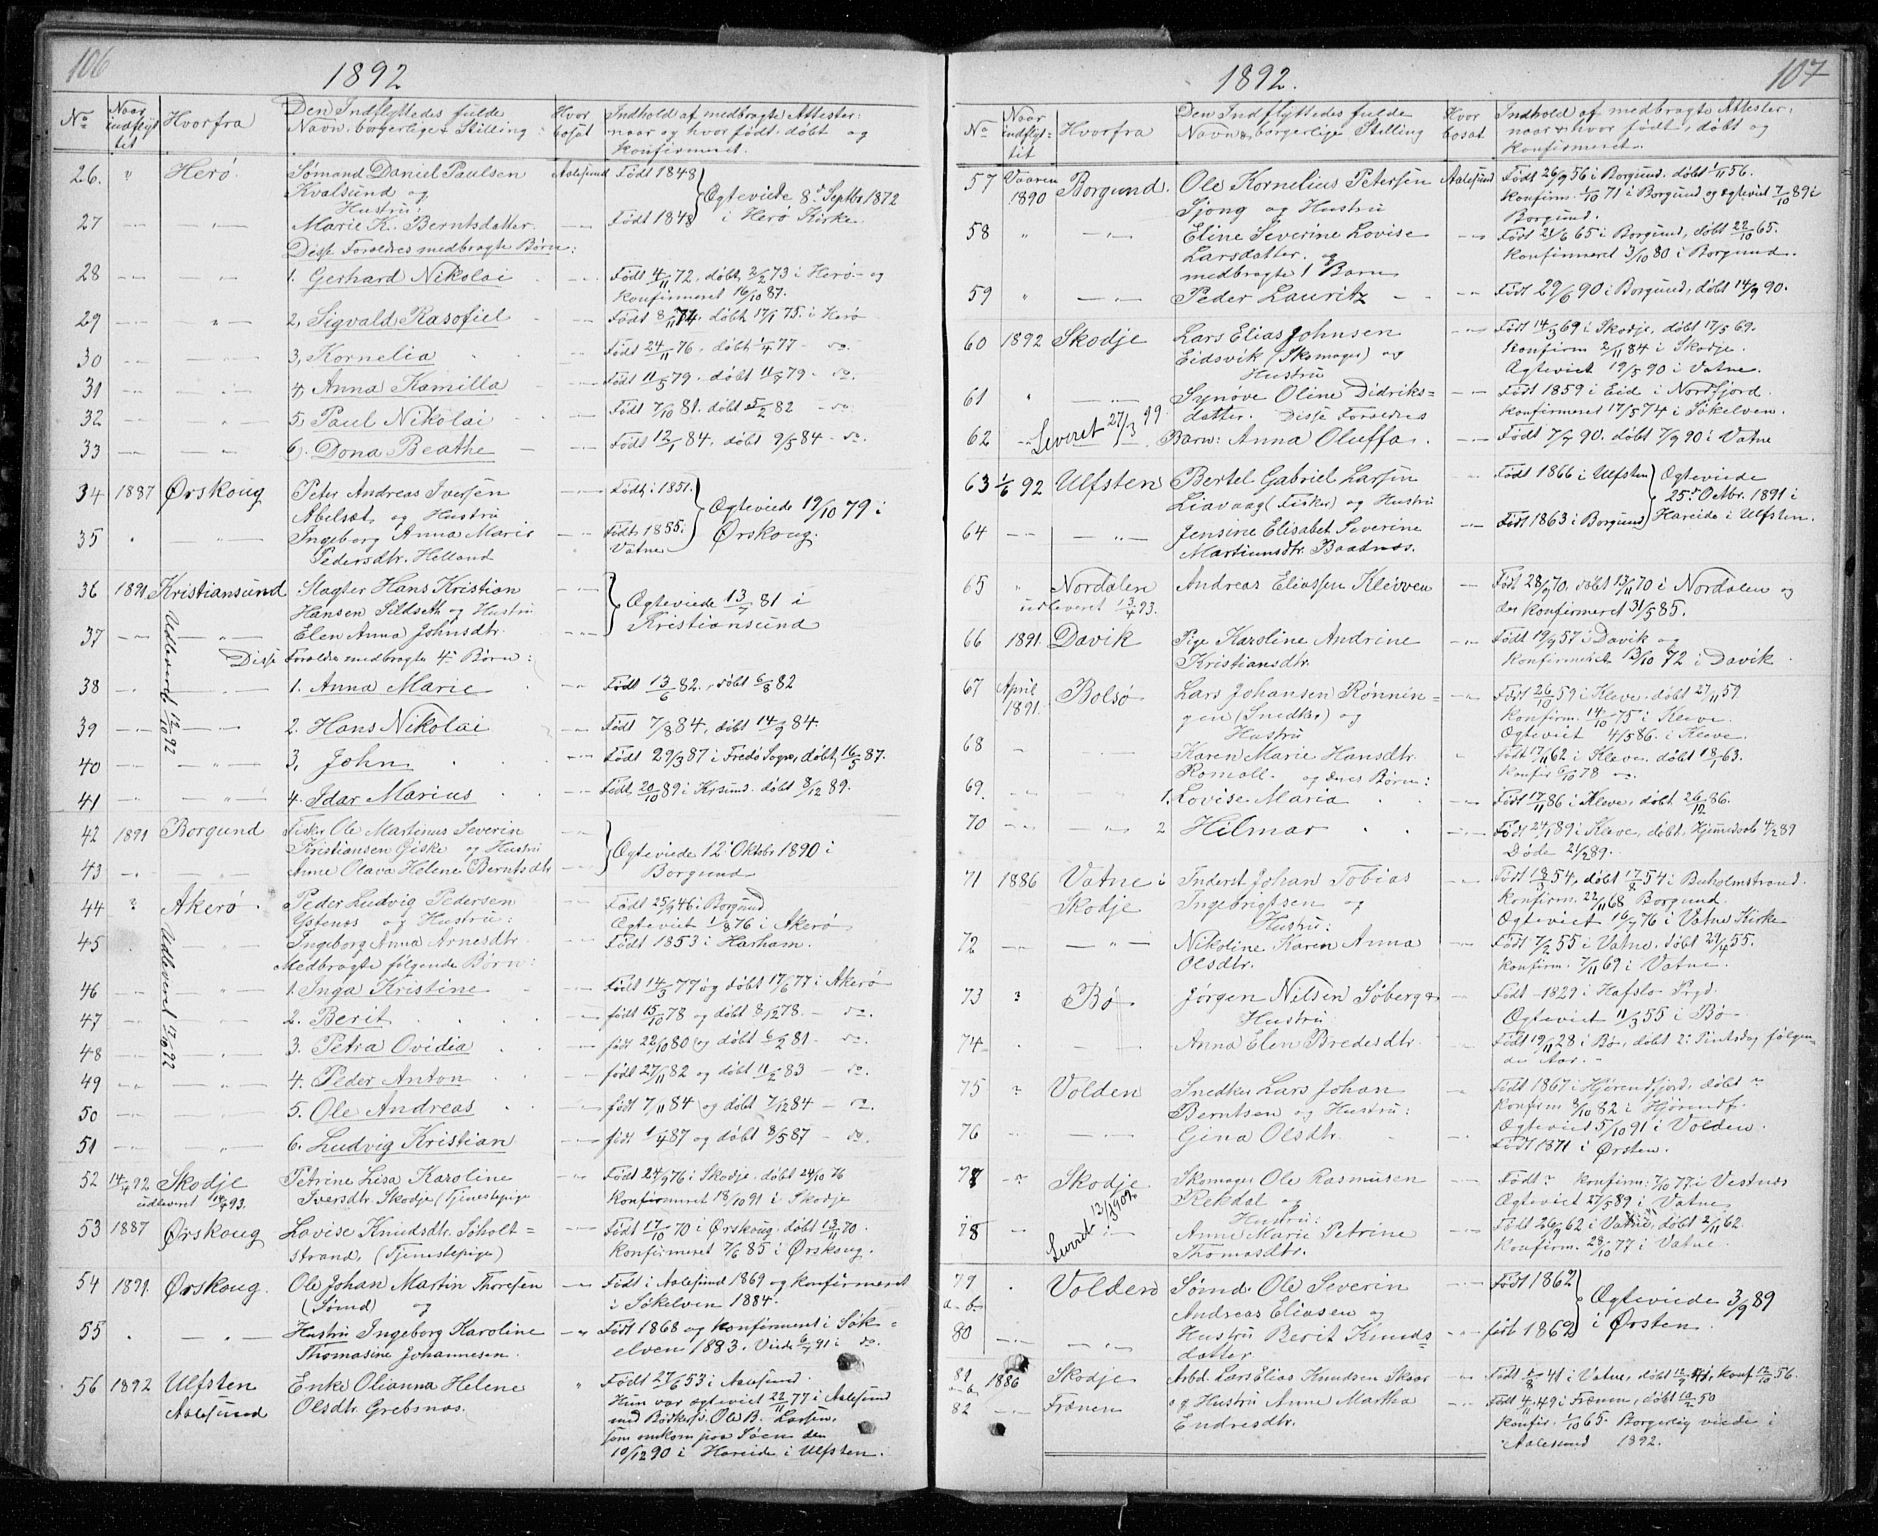 106
1892
No
Naar indflyttet
Hvorfra
Den Indflyttedes fulde Navn, borgerlige Stilling:
Hvor bosat
Indhold af medbragte Attester: naar og hvor født, døbt og konfirmeret.
26. " Herø Sømand Daniel Paulsen Aalesund Født 1848
Kvalsund og Ægteviede 8d Septbr 1872
Hustru: i Herø Kirke
27 Marie K. Berntsdatter Født 1848
Disse Forældres medbragte Børn:
28 1. Gerhard Nikolai Født 4/11 72, døbt 2/2 73 i Herø og
konfirmeret 16/10 87.
29 2, Sigvald Rasofiel Født 8/11 74, døbt 17/1 75. i Herø
30 3, Kornelia Født 24/11 76, døbt 1/4 77 - do.
31 4, Anna Kamilla Født 11/5 79, døbt 11/7 79 - do.
32 5, Paul Nikolai Født 7/10 81, døbt 5/2 82 - do
33 6, Dona Beathe Født 12/1 84, døbt 9/5 84 - do.
34 1887 Ørskoug Peter Andreas Iversen Født i 1851.
Abelsæt og Hustru Ægteviede 19/10 79 i
35 Ingeborg Anna Marie Født 1855. Ørskoug.
Pedersdtr. Helland Vatne
36 1891 Kristiansund Slagter Hans Kristian
Hansen Sildseth og Hustru Ægteviede 13/7 81 i
37 Elen Anna Johnsdtr. Kristiansund
Disse Forældre medbragte 4re Børn:
Udleveret 12/10 92
38 1. Anna Marie Født 13/6 82, døbt 6/8 82
39 2. Hans Nikolai Født 7/8 84, døbt 14/9 84.
40 3, John Født 29/3 87 i Fredø Sogn, døbt 16/5 87.
41 4. Idar Marius Født 20/10 89 i Krsund. døbt 8/12 89.
42 1891 Borgund Fisker Ole Martinus Severin
Kristiansen Giske og Hustru Ægteviede 12 Oktbr 1890 i
43 Anne Olava Helene Berntsdtr Borgund
44 ? Akerø Peder Ludvig Pedersen Født 25/9 46 i Borgund
Ystenæs og Hustru: Ægteviet 1/8 76 i Akerø
45 Ingeborg Anna Arnesdtr. Født 1853 i Harham.
Medbragte følgende Børn:
Udleveret 17/10 92
46 1. Inga Kristine Født 14/3 77 og døbt 17/6 77 i Akerø
47 2. Berit født 15/10 78 og døbt 8/12 78. - do.
48 3. Petra Ovidia født 22/10 80 og døbt 6/2 81 - do.
49 4. Peder Anton født 27/11 82 og døbt 11/2 83 - do.
50 5. Ole Andreas født 7/11 84 og døbt 7/12 84 - do.
51 6. Ludvig Kristian født 1/4 87 og døbt 8/5 87 - do.
52 14/4 92 Skodje Petrine Lisa Karoline Født 24/9 76 i Skodje. døbt 24/10 76
udleveret 14/4 93. Iversdtr Skodje (Tjenestepige Konfirmeret 18/10 91 i Skodje
53 1887 Ørskoug Lovise Knudsdtr. Soholt= Født 17/10 70 i Ørskoug. døbt 13/11 70.
strand, (Tjenestepige) konfirmeret 7/6 85 i Ørskoug.
54 1891. Ørskoug. Ole Johan Martin Thoresen Født i Aalesund 1869 og konfirmeret
(Sømd) og i Søkelven 1884.
55 Hustru Ingeborg Karoline Født 1868 og konfirmert i Søk-
Thomasine Johannesen. elven 1883. Viede 6/7 91 i do.
56 1892 Ulfsten Enke Olianna Helene Født 27/6 53 i Aalesund
Aalesund Olsdtr. Grebsnæs. Hun var ægteviet 22/11 77 i Aalesund
med Ole B. Larsen,
som omkom paa Søen den
19/12 90 i Hareide i Ulfsten.
1892.
107
No
Naar indflyttet
Hvorfra
Den Indflyttedes fulde Navn & borgerlige Stilling
Hvor bosat
Indhold af medbragte Attester: naar & hvor født, døbt og konfirmeret.
57 Vaaren 1890 Borgund. Ole Kornelius Petersen Aalesund Født 26/9 56 i Borgund. døbt 1/11 56.
Sjong og Hustru konfirm. 1/10 71 i Borgund og Ægteviet 7/10 89 i
Borgund.
58 Eline Severine Lovise Født 21/6 65 i Borgund, døbt 22/10 65.
Larsdatter. og konfirmeret 3/10 80 i Borgund.
medbragte 1 Barn
59 Peder Lauritz Født 29/6 90 i Borgund, døbt 14/9 90.
60 1892 Skodje Lars Elias Johnsen Født 14/3 69 i Skodje, døbt 17/5 69.
Eidsvik (Skomager) og Konfirm 2/11 84 i Skodje.
Hustru Ægteviet 19/5 90 i Vatne.
61 Synøve Oline Didriks- Født 1859 i Eid i Nordfjord.
datter. Disse Forældres konfirmeret 17/5 74 i Søkelven.
62 Leveret 27/3 99 Barn: Anna Oluffa. Født 7/7 90. døbt 7/9 90 i Vatne
63 1/6 92 Ulfsten Bertel Gabriel Larsen Født 1866 i Ulfsten Ægteviede
Liavaag (Fisker) og Hustru 25de Octbr. 1891 i
64 Jensine Elisabet Severine Født 1863 i Borgund Hareide i Ulfsten.
Martinusdtr. Baadnæs.
65 Nordalen Andreas Eliassen Kleiven Født 28/9 70. døbt 13/11 70 i Nordalen og
udleveret 13/4 93. der konfirmeret 31/5 85.
66 1891. Davik Pige Karoline Andrine Født 19/9 57 i Davik og
Kristiansdtr. konfirmeret 13/10 72 i Davik
67 April 1891. Bolsø Lars Johansen Rønnin- Født 26/10 59 i Kleve. døbt 27/11 59
gen (Snedker) og Konfirm. 14/10 75 i Kleve.
Hustru Ægteviet 4/5 86. i Kleve.
68 Karen Marie Hansdtr. Født 17/11 62 i Kleve. døbt 18/1 63.
Romoll. og deres Børn: konfir 6/10 78 do.
69. 1. Lovise Maria Født 17/11 86 i Kleve, døbt 26/12 86.
70 2 Hilmar Født 24/1 89 i Kleve, døbt. Hjemdøbt 4/2 89
Døde 21/2 89.
71 1886 Vatne i Inderst Johan Tobias Født 18/3 54, døbt 17/8 54 i Buholmstrand.
Skodje Ingebrigtsen og Konfirm. 22/11 68 Borgund
Hustru: Ægteviet 19/7 76 i Vatne Kirke
72 Nikoline Karen Anna Født 7/2 55 i Vatne. døbt 29/4 55.
Olsdtr. konfirm. 7/11 69 i Vatne.
73 ? Bø Jørgen Nilsen Søberg & Født 1829 i Hafslo Prgd.
Hustru Ægteviet 11/3 55 i Bø
74 Anna Elen Bredesdtr. Født 19/11 28 i Bø, døbt 2: Pintsdag følgen-
de Aar.
75 ? Volden Snedker Lars Johan Født 1867 i Hjørendfjord. døbt ?
Berntsen og Hustru: Konfirm 8/10 82 i Hjørendf.
76 Gina Olsdtr. Ægteviet 5/10 91 i Volden.
Født 1871 i Ørsten.
77 ? Skodje Skomager Ole Rasmusen Født ? konfirm: 7/10 77 i Vestnæs
Rekdal og Ægteviet 27/5 89, i Vatne
Hustru:
78 Leveret 12/1 1902 Anne Marie Petrine Født 26/9 62 i Vatne, døbt 2/11 62.
Thomasdtr. Konfirm. 28/10 77 i Vatne.
79 a-b Volden Sømd. Ole Severin Født 1862
Andreas Eliasen og Ægteviede 3/9 89
80 Hustru Berit Knuds født 1862 i Ørsten.
datter
81 a-b 1886 Skodje Arbd. Lars Elias Knudsen Skaar Født 5/8 41 i Vatne, døbt 12/9 41, konf 12/10 56.
82 Frænen og Hustru Anne Martha Født 4/11 49 i Frænen, døbt 10/2 50
Endresdtr. konfir. 1/10 65. Borgerlig viede i
Aalesund 1892.